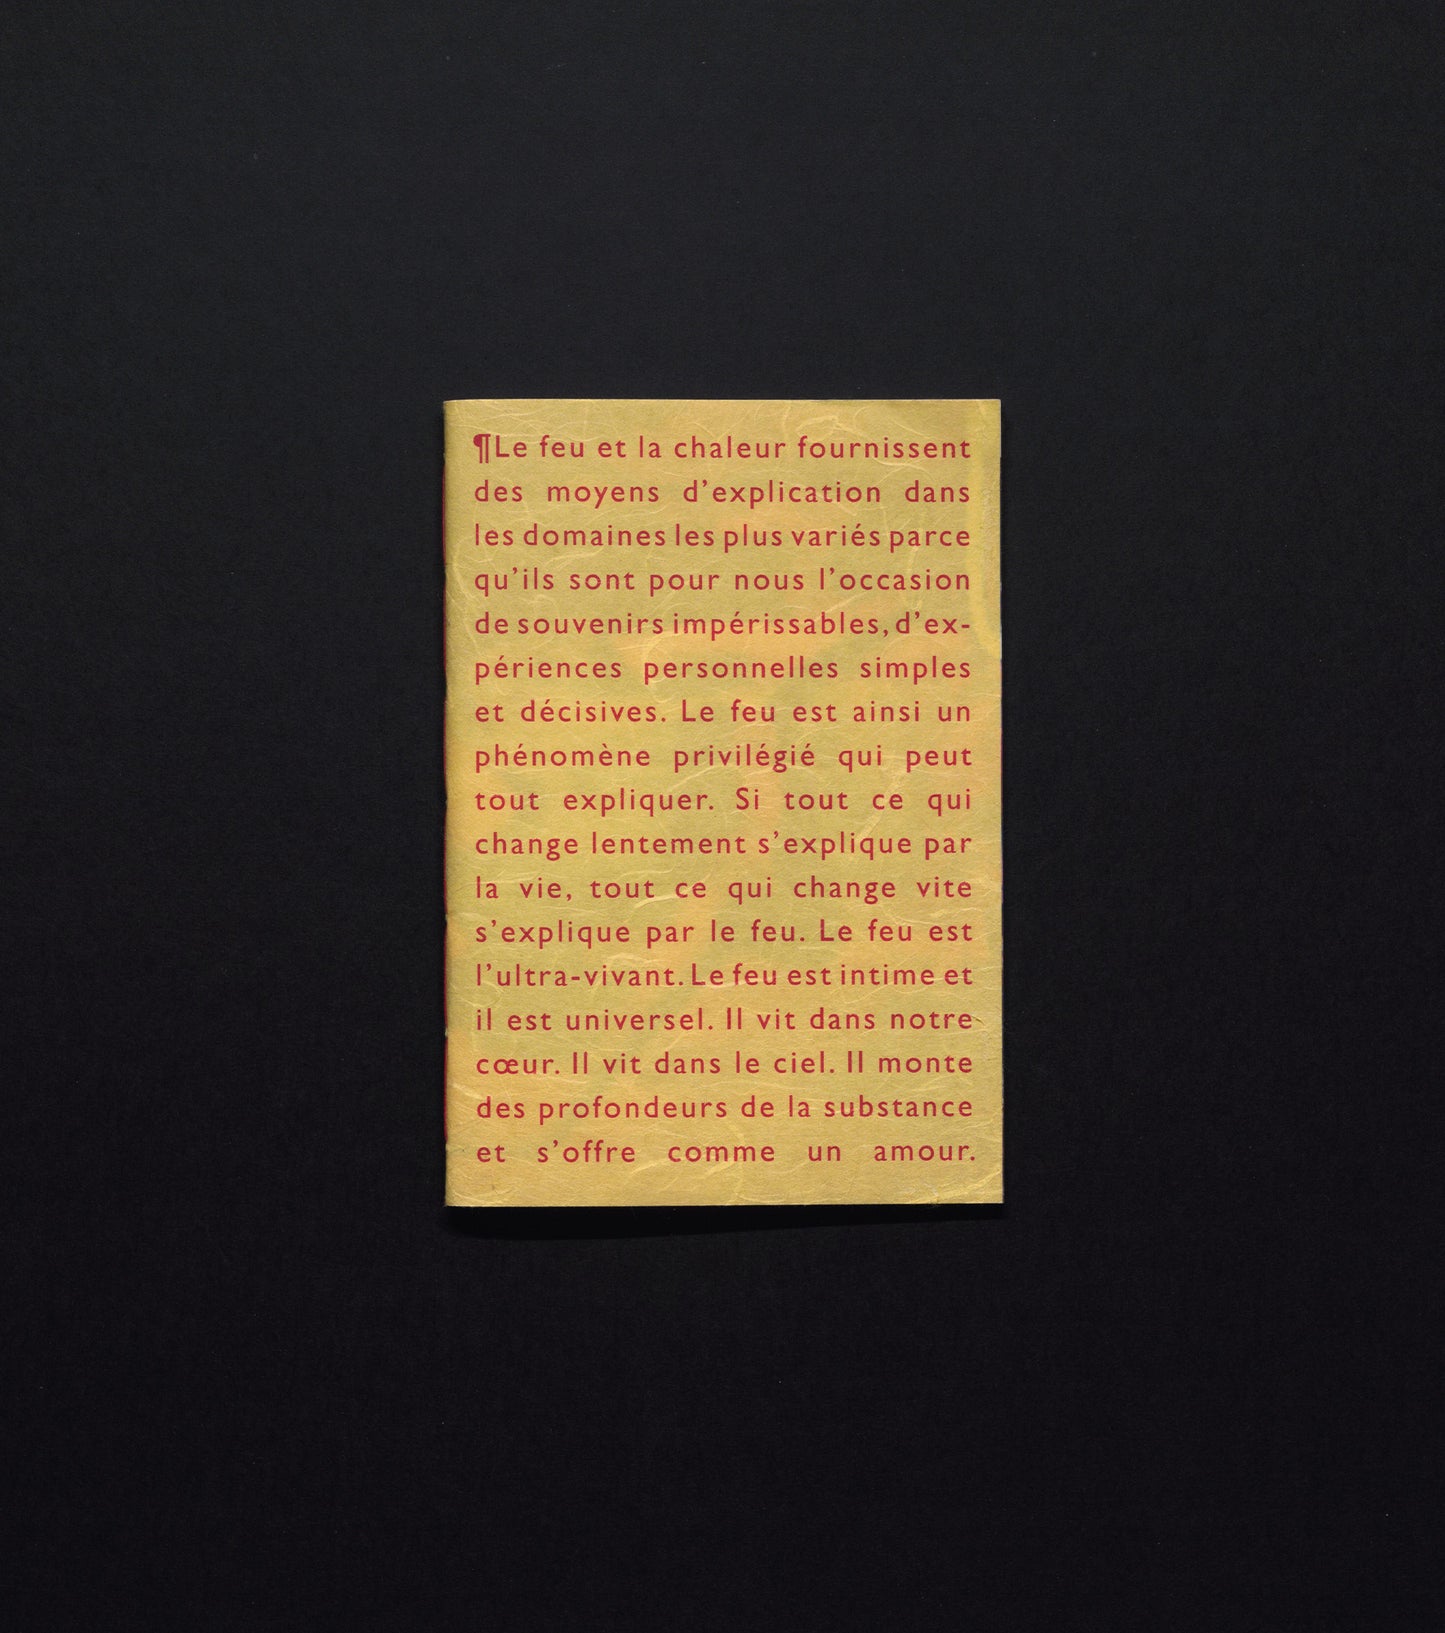 ¶Le feu et la chaleur fournissent
des moyens d’explication dans
les domaines les plus variés parce
qu’ils sont pour nous l’occasion
de souvenirs impérissables, d’ex-
périences personnelles simples
et décisives. Le feu est ainsi un
phénomène privilégié qui peut
tout expliquer. Si tout ce qui
change lentement s’explique par
la vie, tout ce qui change vite
s’explique par le feu. Le feu est
l’ultra-vivant. Le feu est intime et
il est universel. Il vit dans notre
cœur. Il vit dans le ciel. Il monte
des profondeurs de la substance
et s’offre comme un amour.